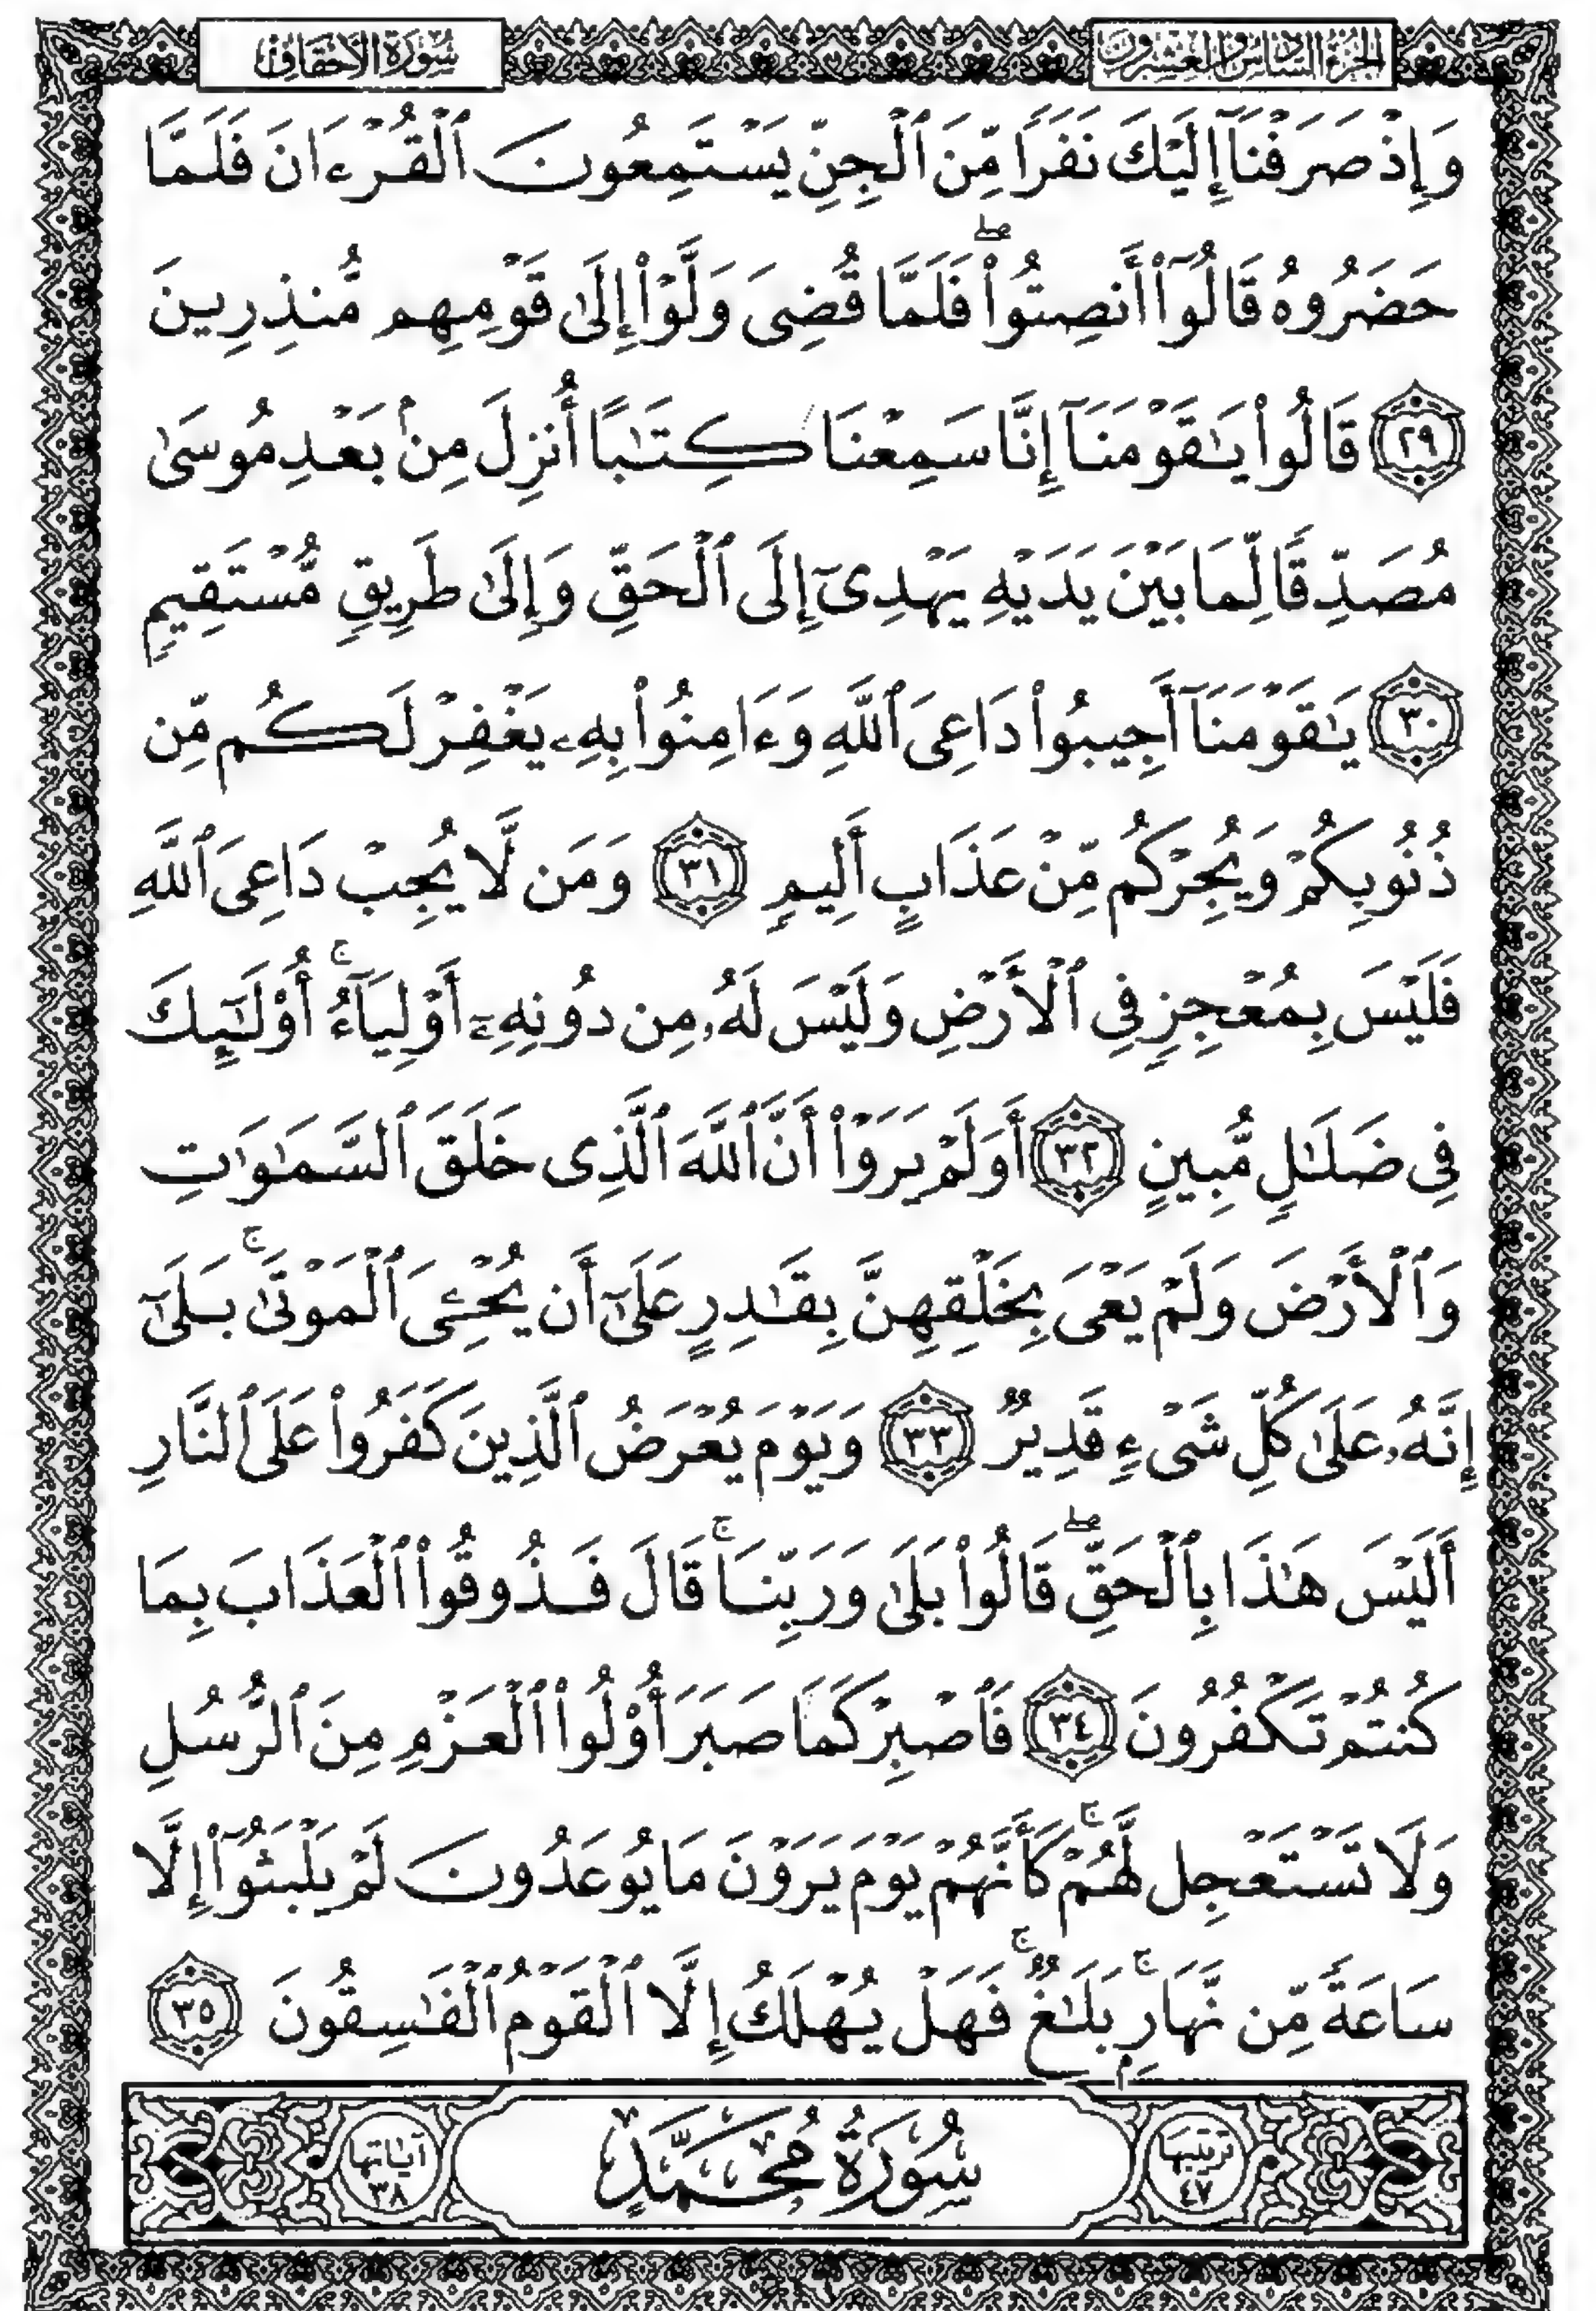 الجزء السادس والعشرون
سورة الأحقاف
وَإِذْ صَرَفْنَآ إِلَيْكَ نَفَرًا مِّنَ ٱلْجِنِّ يَسْتَمِعُونَ ٱلْقُرْءَانَ فَلَمَّا
حَضَرُوهُ قَالُوٓا۟ أَنصِتُوا۟ ۖ فَلَمَّا قُضِىَ وَلَّوْا۟ إِلَىٰ قَوْمِهِم مُّنذِرِينَ
٢٩ قَالُوا۟ يَـٰقَوْمَنَآ إِنَّا سَمِعْنَا كِتَـٰبًا أُنزِلَ مِنۢ بَعْدِ مُوسَىٰ
مُصَدِّقًا لِّمَا بَيْنَ يَدَيْهِ يَهْدِىٓ إِلَى ٱلْحَقِّ وَإِلَىٰ طَرِيقٍ مُّسْتَقِيمٍ
٣٠ يَـٰقَوْمَنَآ أَجِيبُوا۟ دَاعِىَ ٱللَّهِ وَءَامِنُوا۟ بِهِۦ يَغْفِرْ لَكُم مِّن
ذُنُوبِكُمْ وَيُجِرْكُم مِّنْ عَذَابٍ أَلِيمٍ ٣١ وَمَن لَّا يُجِبْ دَاعِىَ ٱللَّهِ
فَلَيْسَ بِمُعْجِزٍ فِى ٱلْأَرْضِ وَلَيْسَ لَهُۥ مِن دُونِهِۦٓ أَوْلِيَآءُ ۚ أُو۟لَـٰٓئِكَ
فِى ضَلَـٰلٍ مُّبِينٍ ٣٢ أَوَلَمْ يَرَوْا۟ أَنَّ ٱللَّهَ ٱلَّذِى خَلَقَ ٱلسَّمَـٰوَٰتِ
وَٱلْأَرْضَ وَلَمْ يَعْىَ بِخَلْقِهِنَّ بِقَـٰدِرٍ عَلَىٰٓ أَن يُحْـِۧىَ ٱلْمَوْتَىٰ ۚ بَلَىٰٓ
إِنَّهُۥ عَلَىٰ كُلِّ شَىْءٍ قَدِيرٌ ٣٣ وَيَوْمَ يُعْرَضُ ٱلَّذِينَ كَفَرُوا۟ عَلَى ٱلنَّارِ
أَلَيْسَ هَـٰذَا بِٱلْحَقِّ ۖ قَالُوا۟ بَلَىٰ وَرَبِّنَا ۚ قَالَ فَذُوقُوا۟ ٱلْعَذَابَ بِمَا
كُنتُمْ تَكْفُرُونَ ٣٤ فَٱصْبِرْ كَمَا صَبَرَ أُو۟لُوا۟ ٱلْعَزْمِ مِنَ ٱلرُّسُلِ
وَلَا تَسْتَعْجِل لَّهُمْ ۚ كَأَنَّهُمْ يَوْمَ يَرَوْنَ مَا يُوعَدُونَ لَمْ يَلْبَثُوٓا۟ إِلَّا
سَاعَةً مِّن نَّهَارٍۭ ۚ بَلَـٰغٌ ۚ فَهَلْ يُهْلَكُ إِلَّا ٱلْقَوْمُ ٱلْفَـٰسِقُونَ ٣٥
ترتيبها ٤٧ سُورَةُ مُحَمَّدٍ آياتها ٣٨